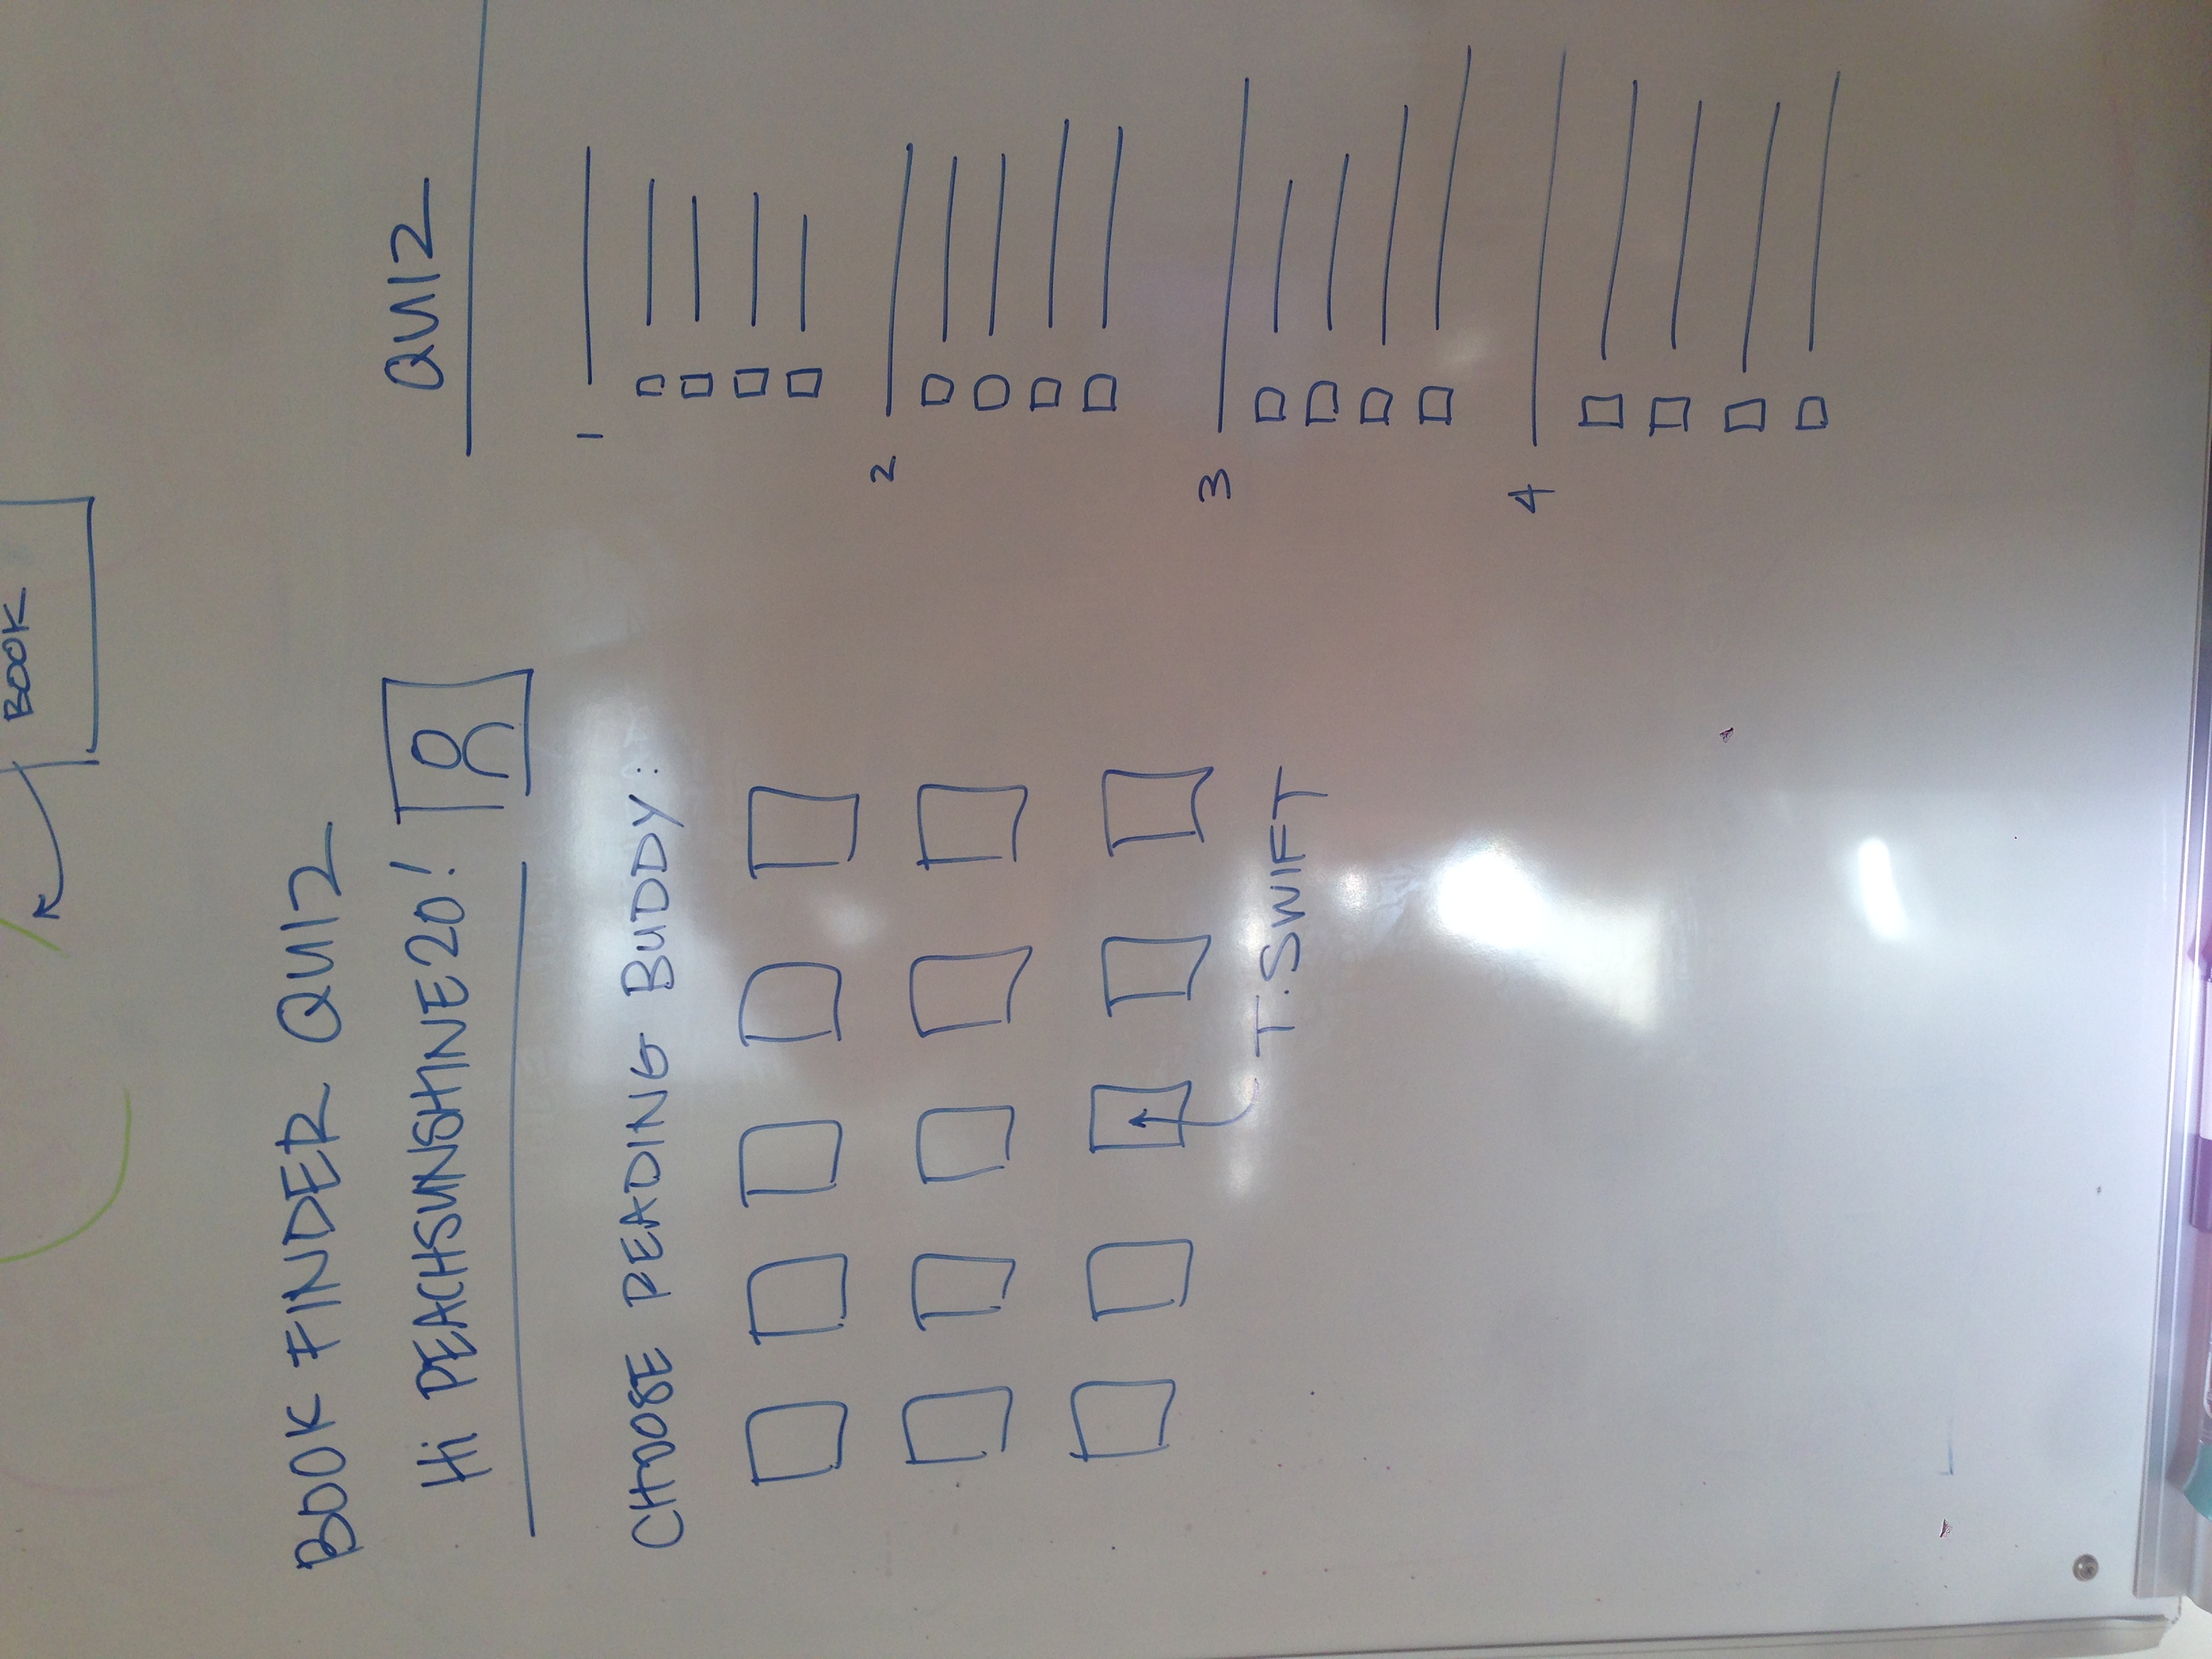 BOOK
BOOK FINDER QUIZ
Hi PEACHSUNSHINE20!
CHOOSE READING BUDDY:
T. SWIFT
QUIZ
1
2
3
4